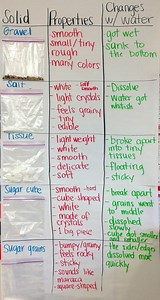 Solid
Properties
Changes
w/ water
Gravel
smooth
small/tiny
rough
many colors
got wet
sunk to
the bottom
Salt
white
light crystals
feels grainy
tiny
edible
- Dissolve
- Water got
which
Tissue
light weight
white
smooth
delicate
soft
broke apart
into tiny
tissues
floating
sticky
Sugar cube
smooth - hard
cube-shaped
white
made of
crystals
1 big piece
- break apart
- grains went
to middle
- dissolved
slowly
- cube got smaller
and smaller
Sugar grains
- bumpy/grainy
feels rocky
- sticky
- sounds like
maraca
- square-shaped
dissolved more
quickly